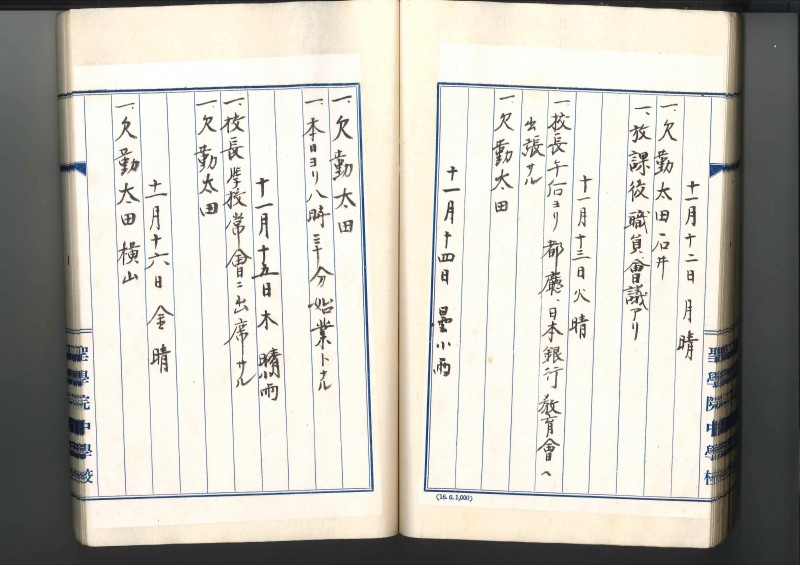 十一月十二日 月 晴
一、欠勤太田石井
一、放課後職員會議アリ
十一月十三日火 晴
一、校長午后ヨリ都廳、日本銀行教育會ヘ
出張サル
一、欠勤太田
十一月十四日 曇小雨
聖學院中學校
(16. 6. 1,000)
一、欠勤太田
一、本日ヨリ八時三十分始業トナル
十一月十五日木 晴雨
一、校長學校常會ニ出席サル
一、欠勤太田
十一月十六日 金 晴
一、欠勤太田 横山
聖學院中學校